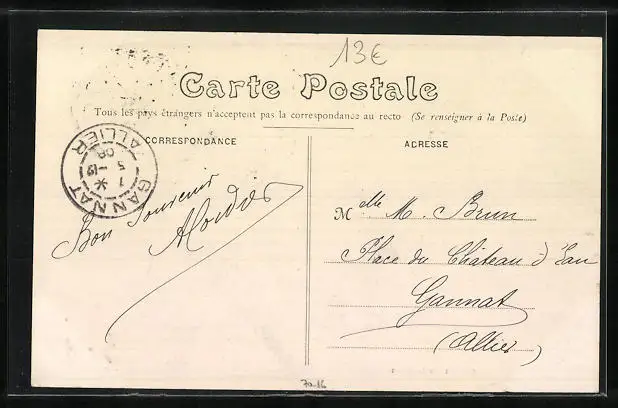 13€
Carte Postale
Tous les pays étrangers n'acceptent pas la correspondance au recto (Se renseigner à la Poste)
CORRESPONDANCE
ADRESSE
GANNAT
ALLIER
Bon Souvenir
Mlle M. Brun
Place du Château d'Eau
Gannat
(Allier)